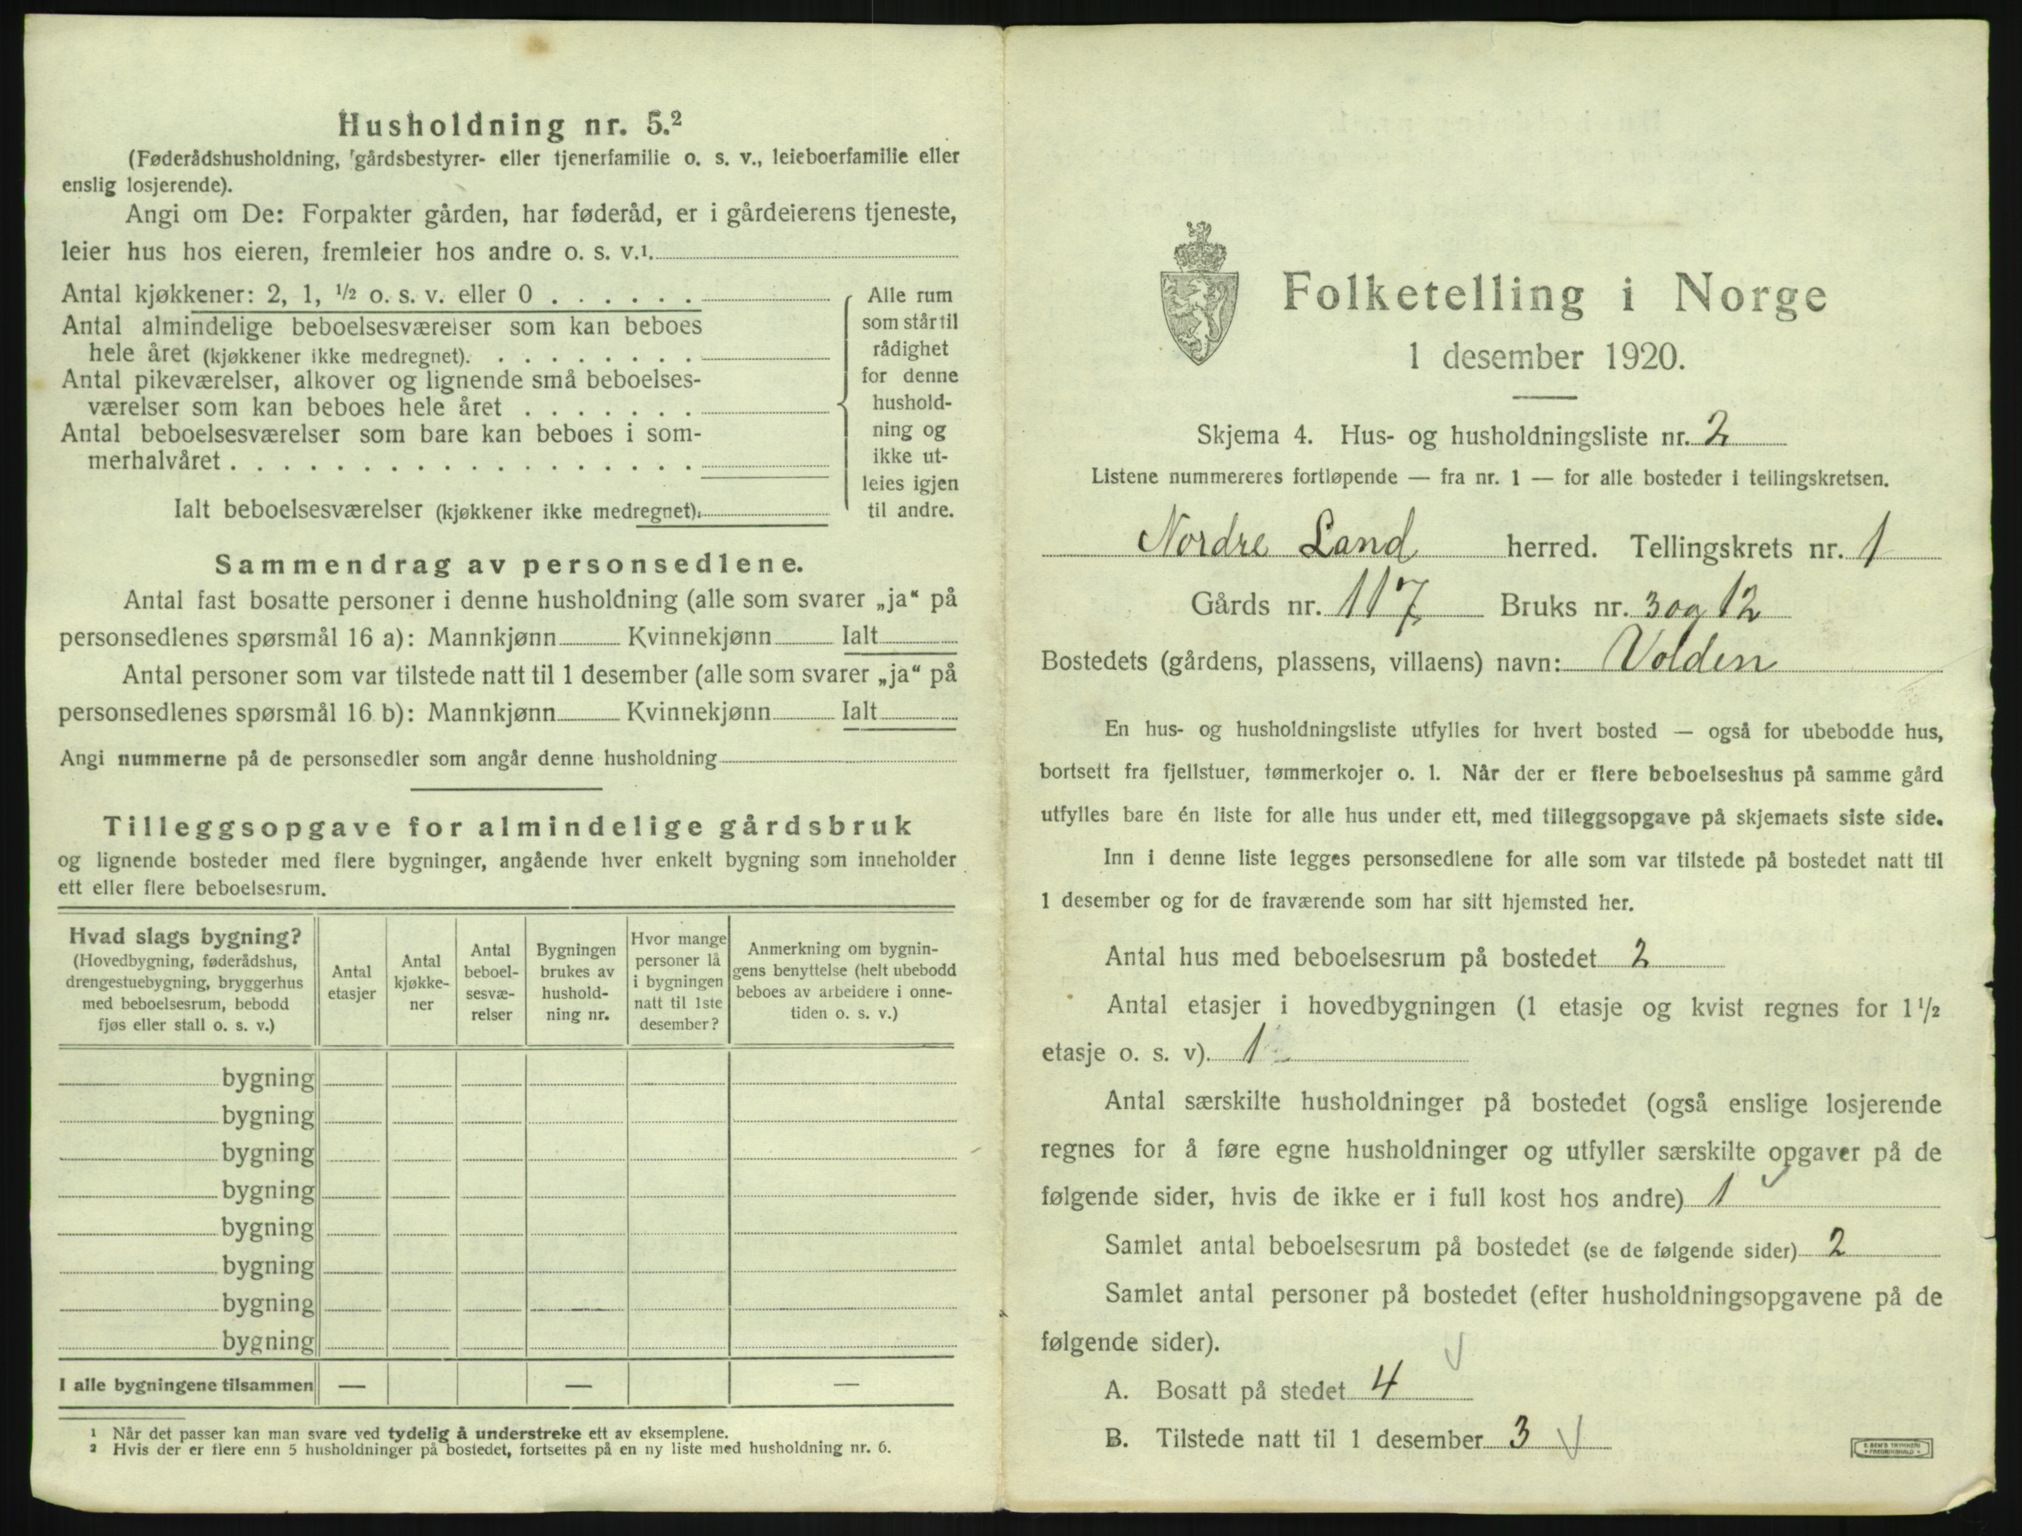 Husholdning nr. 5.²
(Føderådshusholdning, gårdsbestyrer- eller tjenerfamilie o. s. v., leieboerfamilie eller
enslig losjerende).
Angi om De: Forpakter gården, har føderåd, er i gårdeierens tjeneste,
leier hus hos eieren, fremleier hos andre o. s. v.¹.
Antal kjøkkener: 2, 1, ½ o. s. v. eller 0 . . . . . .
Antal almindelige beboelsesværelser som kan beboes
hele året (kjøkkener ikke medregnet). . . . . . . . .
Antal pikeværelser, alkover og lignende små beboelses-
værelser som kan beboes hele året . . . . . . .
Antal beboelsesværelser som bare kan beboes i som-
merhalvåret . . . . . . . . . . . . . . . . . .
Ialt beboelsesværelser (kjøkkener ikke medregnet).
Alle rum
som står til
rådighet
for denne
hushold-
ning og
ikke ut-
leies igjen
til andre.
Sammendrag av personsedlene.
Antal fast bosatte personer i denne husholdning (alle som svarer „ja“ på
personsedlenes spørsmål 16 a): Mannkjønn Kvinnekjønn Ialt
Antal personer som var tilstede natt til 1 desember (alle som svarer „ja“ på
personsedlenes spørsmål 16 b): Mannkjønn Kvinnekjønn Ialt
Angi nummerne på de personsedler som angår denne husholdning
Tilleggsopgave for almindelige gårdsbruk
og lignende bosteder med flere bygninger, angående hver enkelt bygning som inneholder
ett eller flere beboelsesrum.
Hvad slags bygning?
(Hovedbygning, føderådshus,
drengestuebygning, bryggerhus
med beboelsesrum, bebodd
fjøs eller stall o. s. v.)
Antal
etasjer
Antal
kjøkke-
ner
Antal
beboel-
sesvæ-
relser
Bygningen
brukes av
hushold-
ning nr.
Hvor mange
personer lå
i bygningen
natt til 1ste
desember?
Anmerkning om bygnin-
gens benyttelse (helt ubebodd
beboes av arbeidere i onne-
tiden o. s. v.)
bygning
bygning
bygning
bygning
bygning
bygning
bygning
bygning
I alle bygningene tilsammen — — —
¹ Når det passer kan man svare ved tydelig å understreke ett av eksemplene.
² Hvis der er flere enn 5 husholdninger på bostedet, fortsettes på en ny liste med husholdning nr. 6.
Folketelling i Norge
1 desember 1920.
Skjema 4. Hus- og husholdningsliste nr. 2
Listene nummereres fortløpende — fra nr. 1 — for alle bosteder i tellingskretsen.
Nordre Land herred. Tellingskrets nr. 1
Gårds nr. 117 Bruks nr. 3 og 12
Bostedets (gårdens, plassens, villaens) navn: Volden
En hus- og husholdningsliste utfylles for hvert bosted — også for ubebodde hus,
bortsett fra fjellstuer, tømmerkojer o. l. Når der er flere beboelseshus på samme gård
utfylles bare én liste for alle hus under ett, med tilleggsopgave på skjemaets siste side.
Inn i denne liste legges personsedlene for alle som var tilstede på bostedet natt til
1 desember og for de fraværende som har sitt hjemsted her.
Antal hus med beboelsesrum på bostedet 2
Antal etasjer i hovedbygningen (1 etasje og kvist regnes for 1½
etasje o. s. v). 1
Antal særskilte husholdninger på bostedet (også enslige losjerende
regnes for å føre egne husholdninger og utfyller særskilte opgaver på de
følgende sider, hvis de ikke er i full kost hos andre) 1
Samlet antal beboelsesrum på bostedet (se de følgende sider) 2
Samlet antal personer på bostedet (efter husholdningsopgavene på de
følgende sider).
A. Bosatt på stedet 4
B. Tilstede natt til 1 desember 3